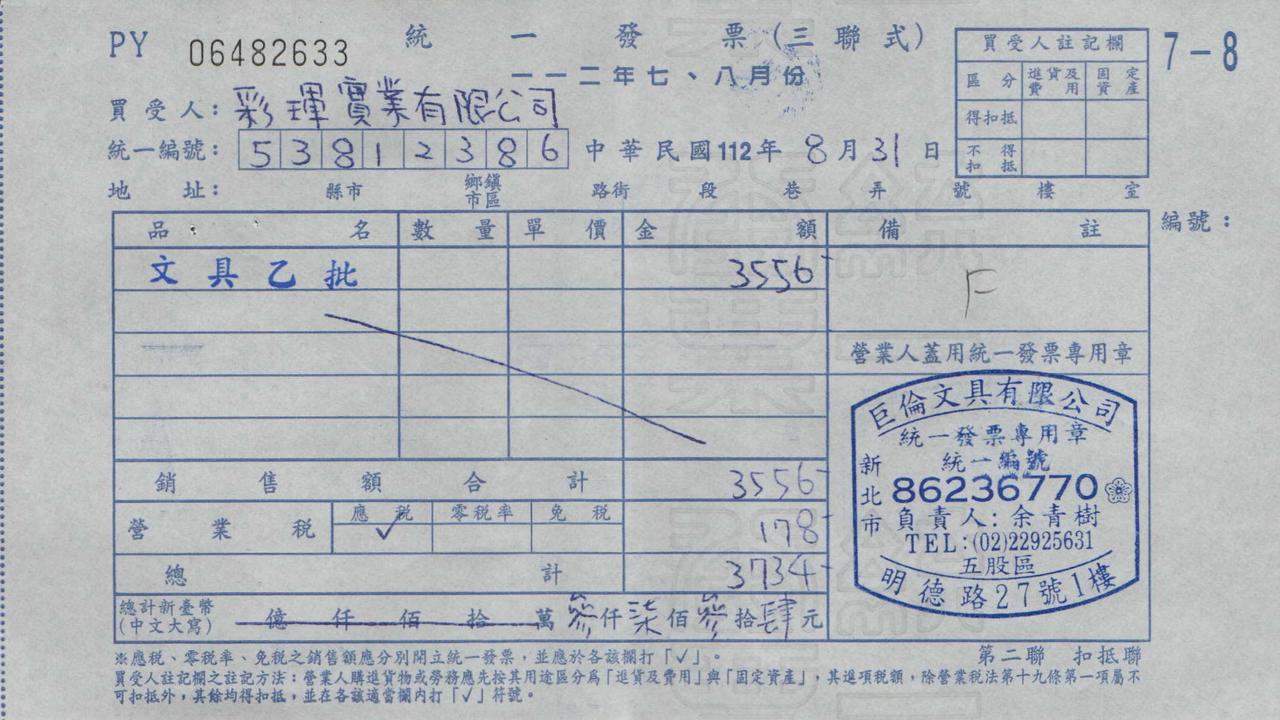 PY 06482633 統一發票(三聯式) 7-8
一一二年七、八月份
買受人: 彩琿實業有限公司
統一編號: 53812386 中華民國112年8月31日
地址: 縣市 鄉鎮市區 路街 段 巷 弄 號 樓 室
買受人註記欄
區分 進貨及費用 固定資產
得扣抵
不得扣抵
編號:
品名 數量 單價 金額 備註
文具乙批 3556- F
營業人蓋用統一發票專用章
銷售額合計 3556-
營業稅 應稅 ✓ 零稅率 免稅 178-
總計 3734-
總計新臺幣(中文大寫) 億仟佰拾萬參仟柒佰參拾肆元
巨倫文具有限公司
統一發票專用章
統一編號
新北市 86236770
負責人:余青樹
TEL:(02)22925631
五股區
明德路27號1樓
第二聯 扣抵聯
※應稅、零稅率、免稅之銷售額應分別開立統一發票,並應於各該欄打「✓」。
買受人註記欄之註記方法:營業人購進貨物或勞務應先按其用途區分為「進貨及費用」與「固定資產」,其進項稅額,除營業稅法第十九條第一項屬不
可扣抵外,其餘均得扣抵,並在各該適當欄內打「✓」符號。